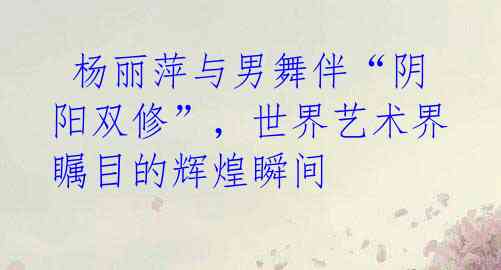 杨丽萍与男舞伴“阴
阳双修”，世界艺术界
瞩目的辉煌瞬间